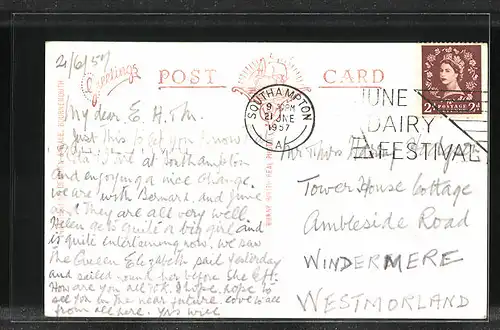 21/6/57
Greetings
POST CARD
SOUTHAMPTON
9 PM
21 JNE
1957
A
JUNE
DAIRY
FESTIVAL
2D POSTAGE 2D
My dear E. H. Tm.
Just this to let you know
are at Southampton
and enjoying a nice change.
we are with Bernard, and June
and they are all very well.
Helen gets quite a big girl and
is quite entertaining now. we saw
the Queen Elizabeth sail yesterday
and sailed round her before she left.
How are you all? O.K. I hope. hope to
see you in the near future. love to all
from all here. yrs
Mr Thos
Tower House Cottage
Ambleside Road
WINDERMERE
WESTMORLAND